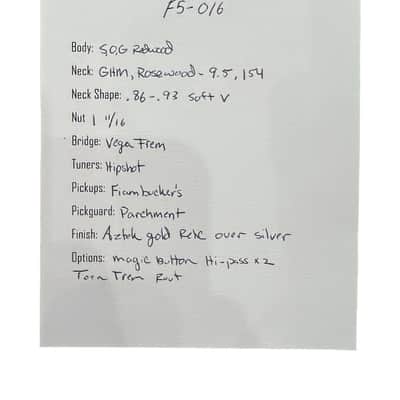 F5-016
Body: S.O.G Redwood
Neck: GHM, Rosewood - 9.5, 154
Neck Shape: .86-.93 Soft V
Nut 1 11/16
Bridge: Vega Trem
Tuners: Hipshot
Pickups: Fiambucker's
Pickguard: Parchment
Finish: Aztek gold Relic over silver
Options: magic Button Hi-pass x 2
Trem Rout